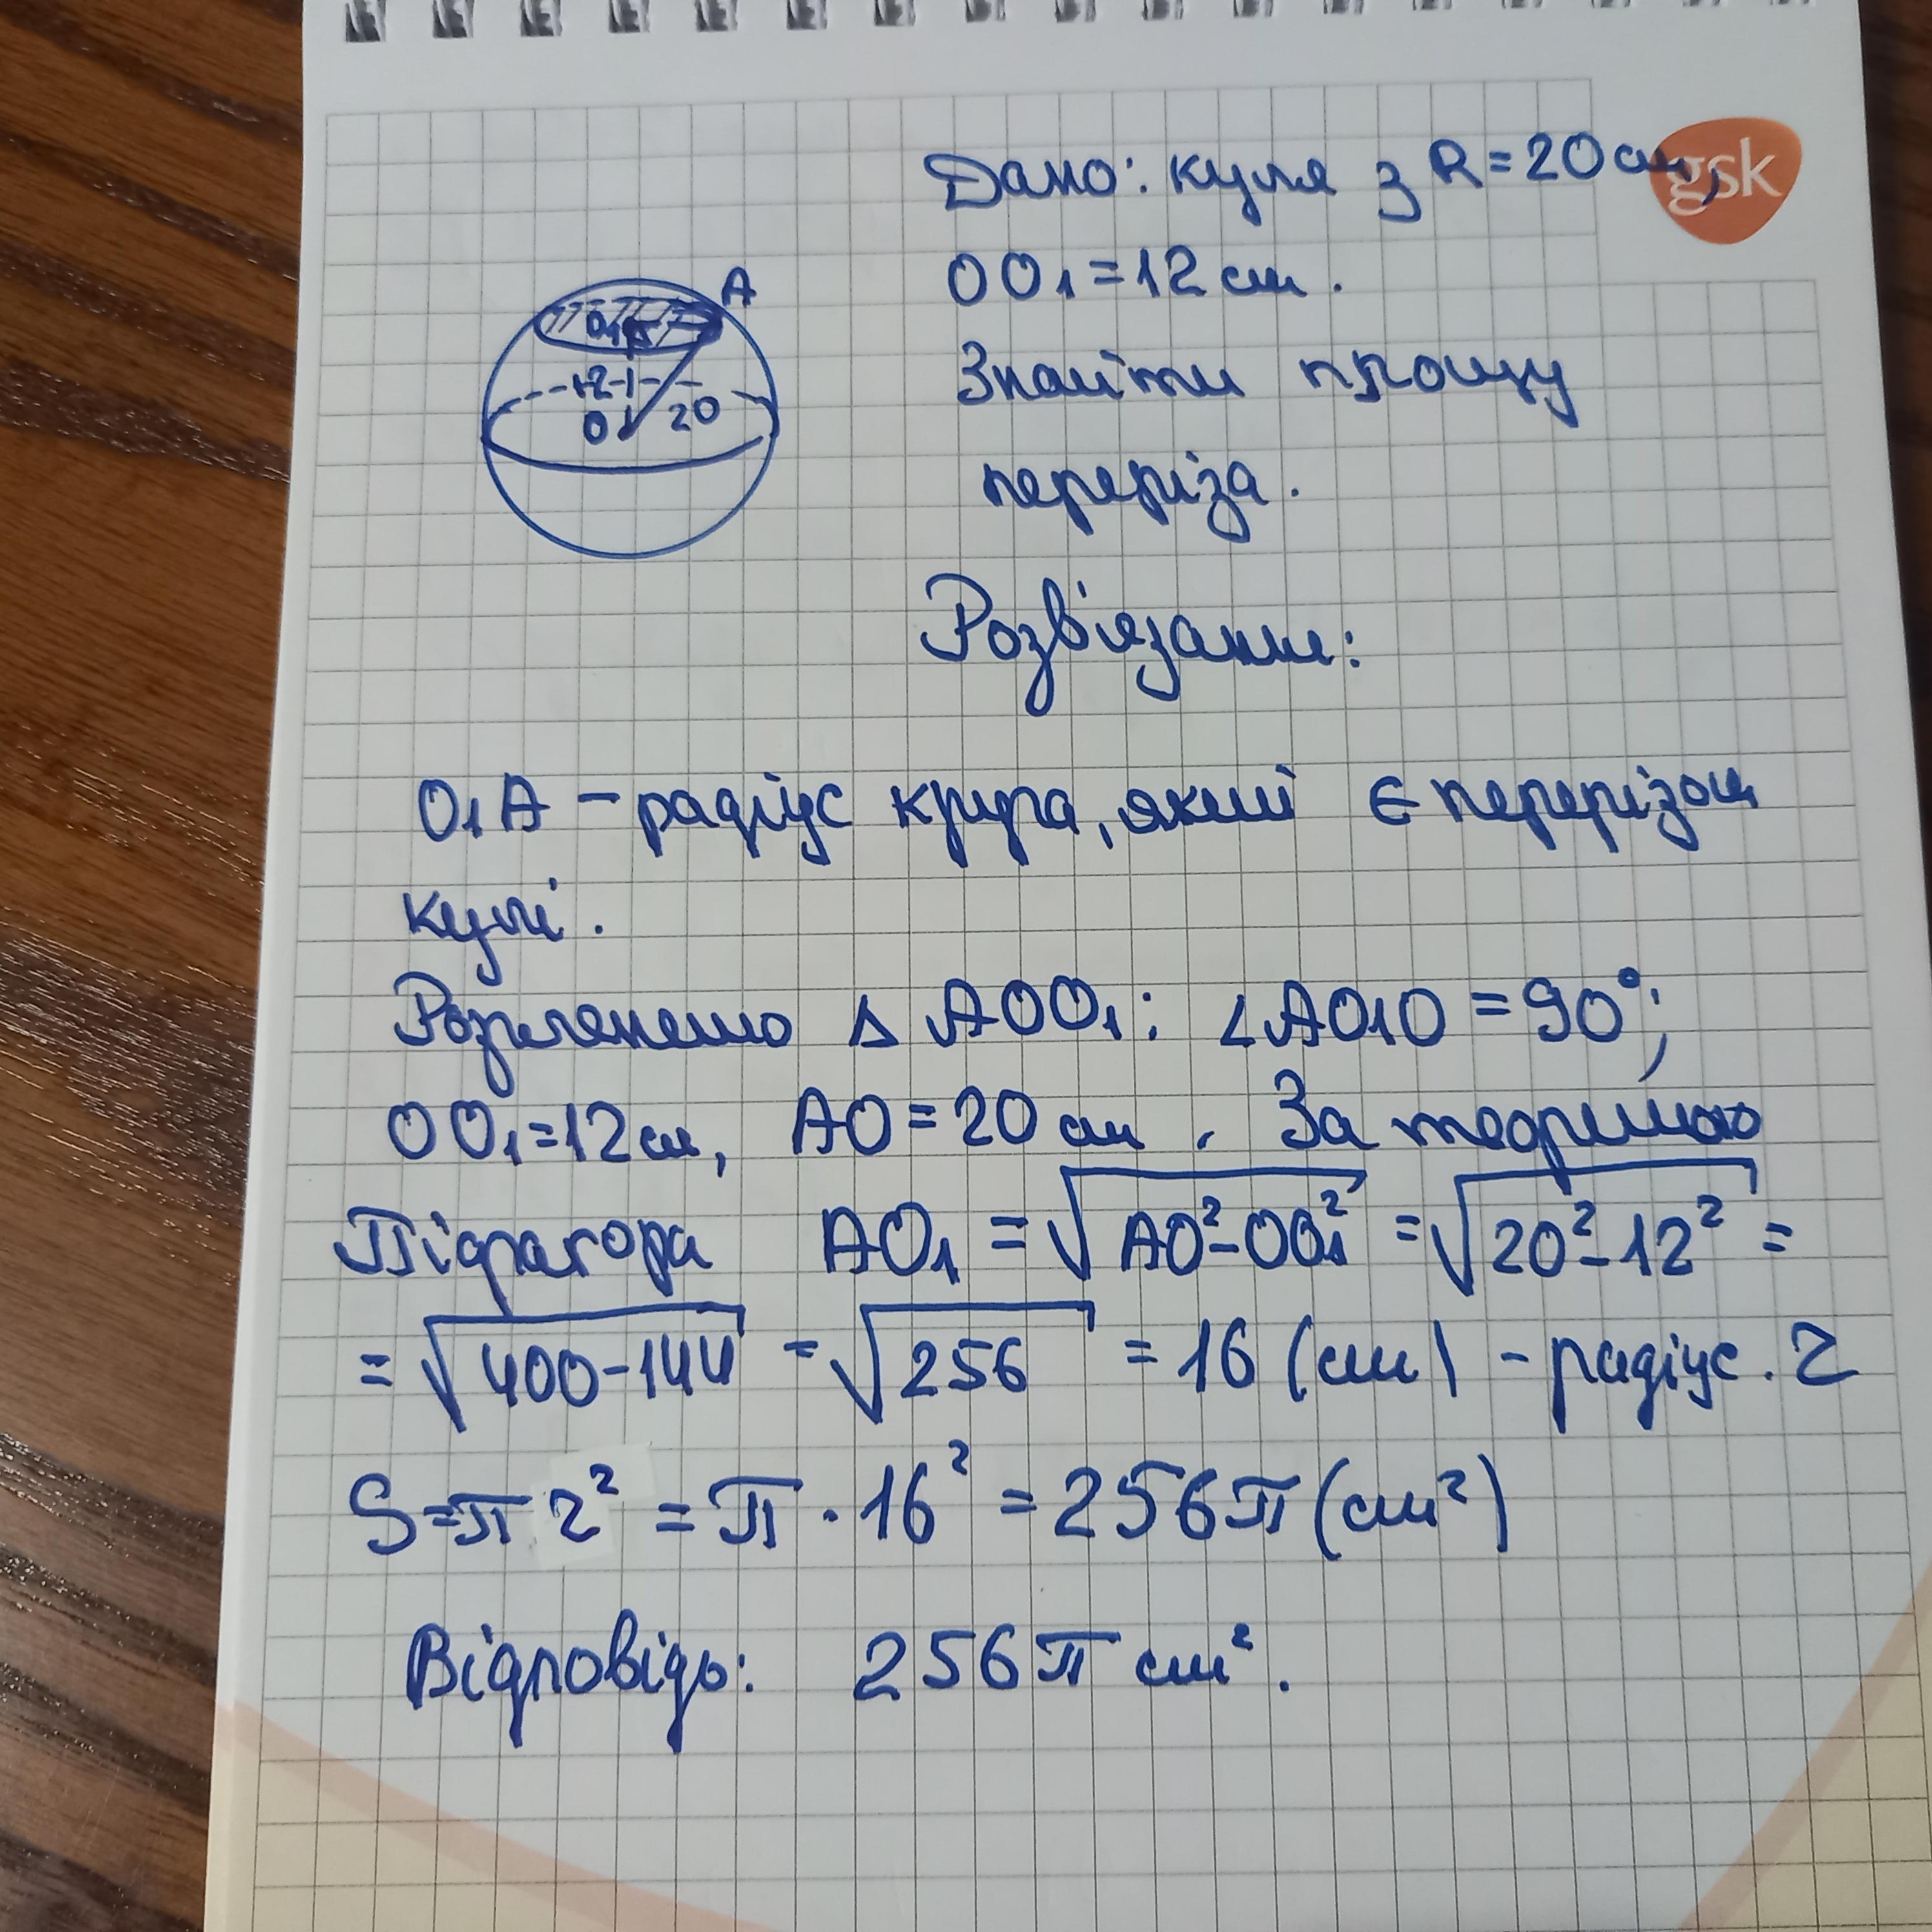 Дано: куля з R=20см,
gsk
OO₁=12 см.
A
O₁
12
O 20
Знайти площу
переріза.
Розв'язання:
O₁A – радіус круга, який є перерізом
кулі.
Розглянемо Δ AOO₁: ∠AO1O = 90°;
OO₁=12см, AO=20 см. За теоремою
Піфагора AO₁ = √AO²-OO₁² = √20²-12² =
= √400-144 = √256 = 16 (см) - радіус. r
S=π r² = π · 16² = 256π (см²)
Відповідь: 256π см².